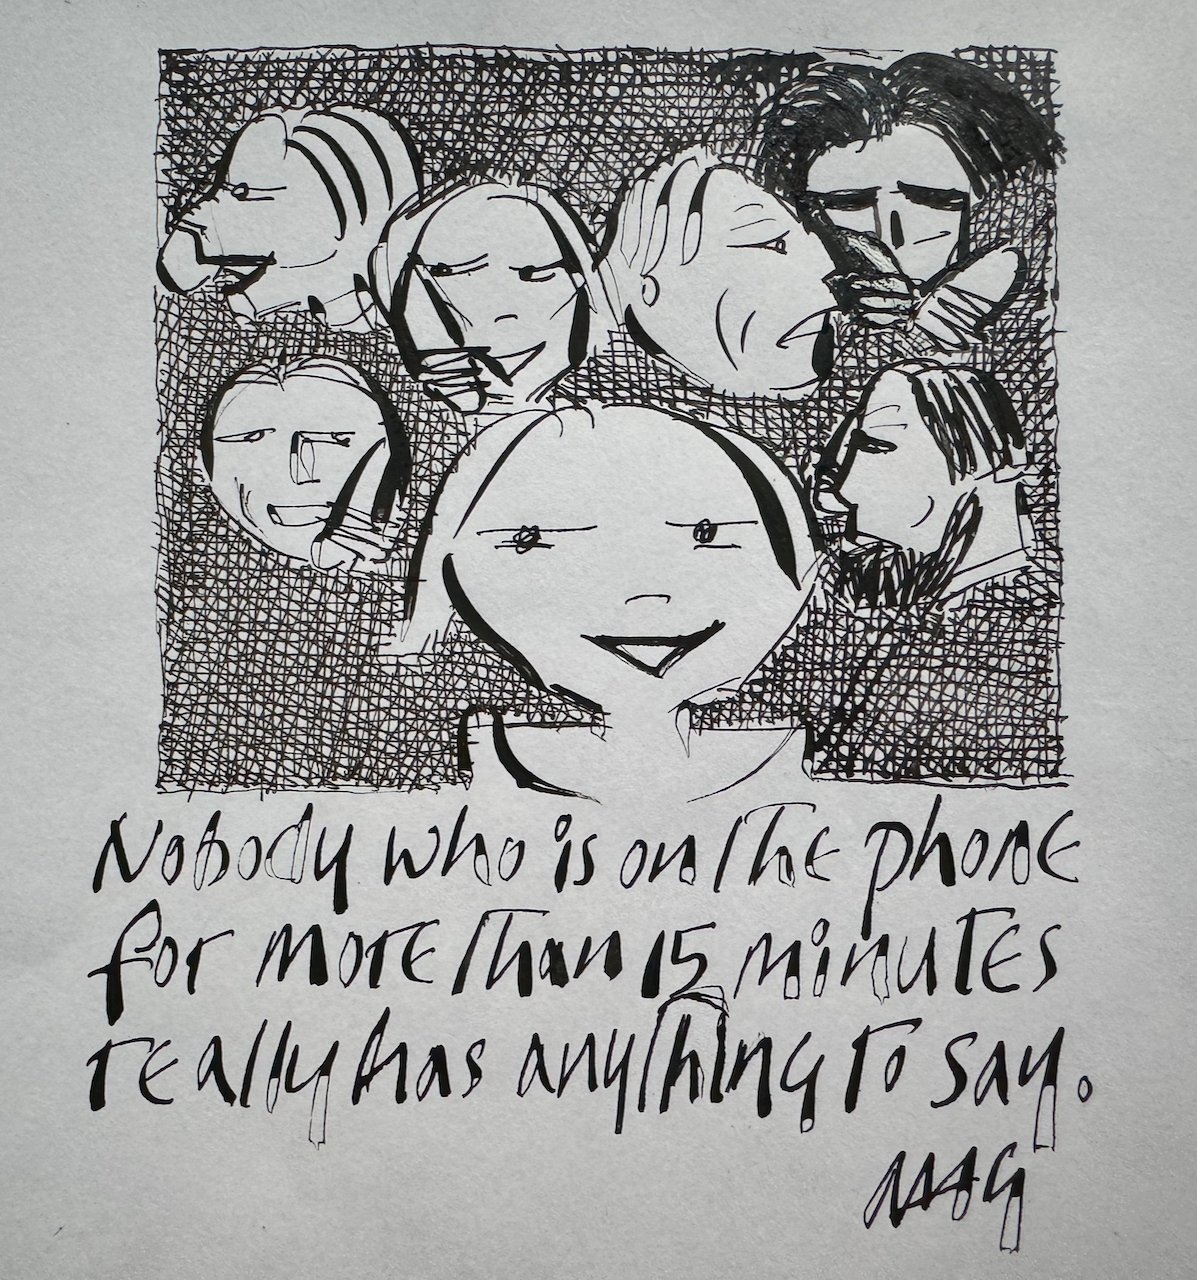 Nobody who is on the phone
for more than 15 minutes
really has anything to say.
MAG